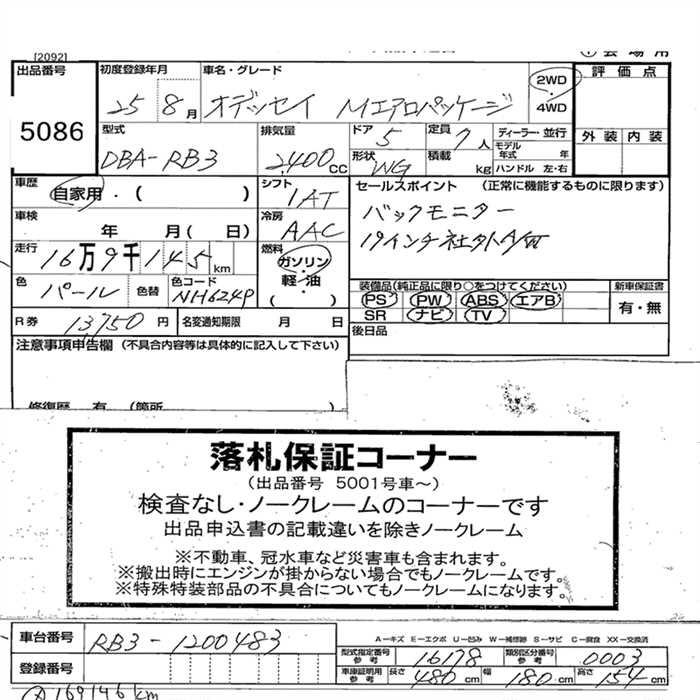 [2092]
出品番号
5086
初度登録年月
25 8月
車名・グレード
オデッセイ Mエアロパッケージ
2WD
4WD
評価点
外装 内装
型式
DBA-RB3
排気量
2400cc
ドア 5
定員 7人
形状 WG
積載 kg
ディーラー・並行
モデル年式 年
ハンドル 左・右
車歴
自家用・( )
シフト
IAT
セールスポイント (正常に機能するものに限ります)
バックモニター
19インチ社外A/W
車検
年 月( 日)
冷房
AAC
走行
16万9千145km
燃料
ガソリン・
軽・油
( )
色
パール
色替
色コード
NH624P
装備品(純正品に限り○をつけてください)
PS PW ABS エアB
SR ナビ TV
新車保証書
有・無
R券 13,750円
名変通知期限 月 日
後日品
注意事項申告欄 (不具合内容等は具体的に記入して下さい)
修復歴 有 (箇所
落札保証コーナー
(出品番号 5001号車~)
検査なし・ノークレームのコーナーです
出品申込書の記載違いを除きノークレーム
※不動車、冠水車など災害車も含まれます。
※搬出時にエンジンが掛からない場合でもノークレームです。
※特殊特装部品の不具合についてもノークレームになります。
車台番号 RB3-1200483
A-キズ E-エクボ U-凹み W-補修跡 S-サビ C-腐食 XX-交換済
型式指定番号 参考 16178
類別区分番号 参考 0003
登録番号
車庫証明用 参考 長さ 480cm 幅 180cm 高さ 154cm
169146km